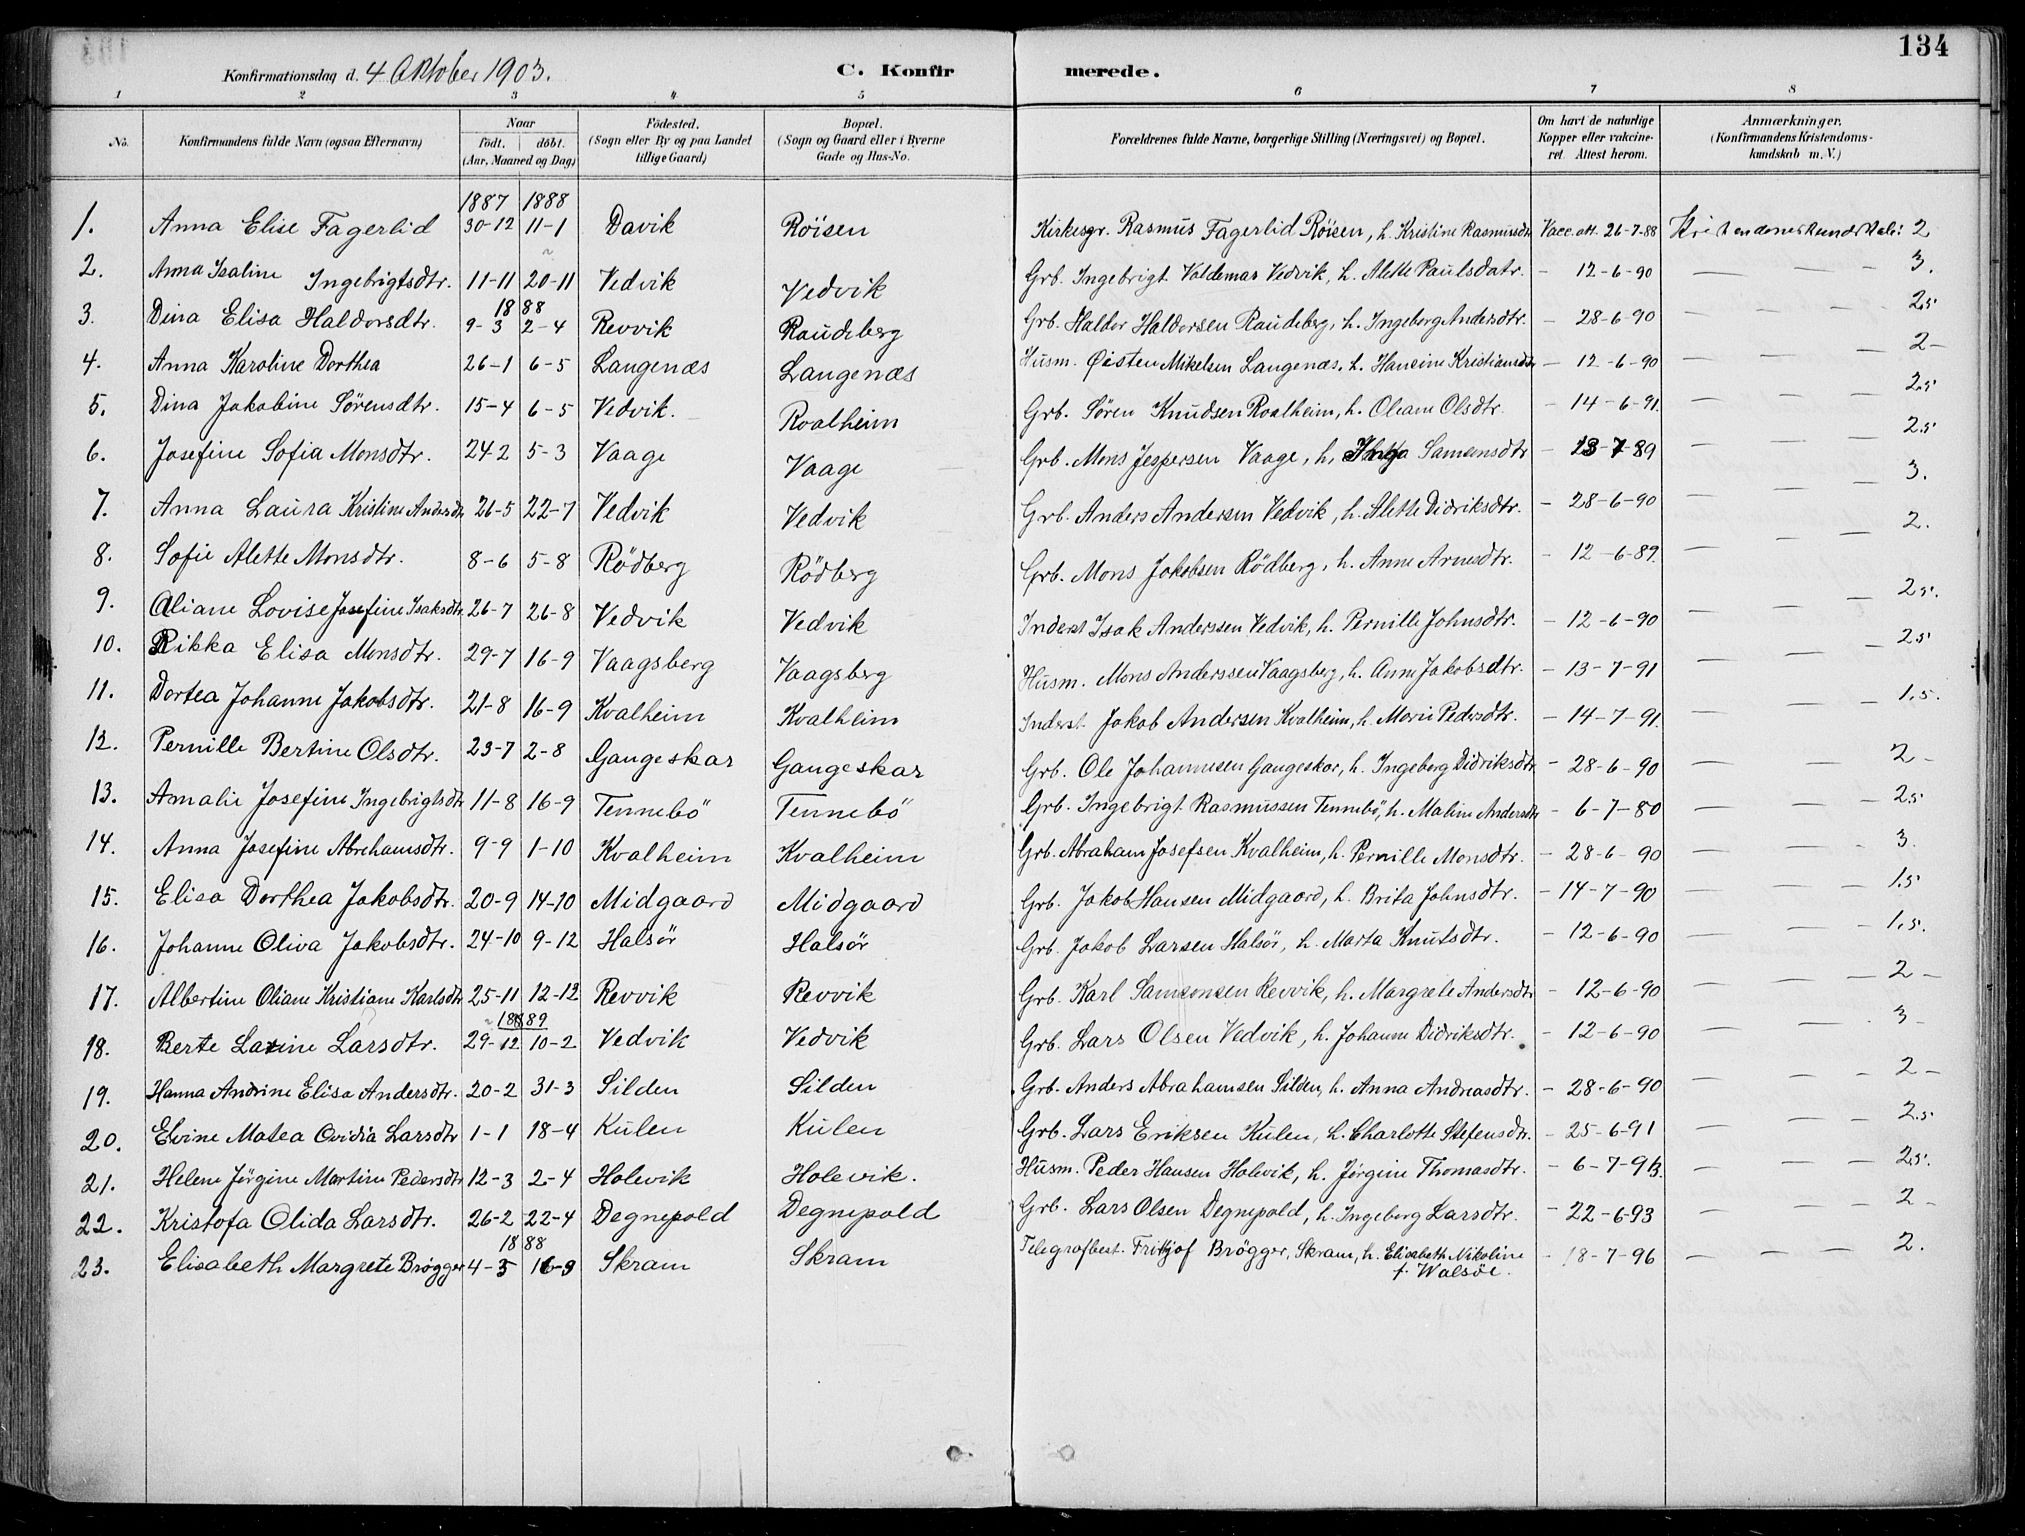 134
Konfirmationsdag d. 4 Oktober 1903. C. Konfirmerede.
1 2 3 4 5 6 7 8
No. Konfirmandens fulde Navn (ogsaa Efternavn) Naar født. døbt. (Aar, Maaned og Dag) Fødested. (Sogn eller By og paa Landet tillige Gaard) Bopæl. (Sogn og Gaard eller i Byerne Gade og Hus-No. Forældrenes fulde Navne, borgerlige Stilling (Næringsvei) og Bopæl. Om havt de naturlige Kopper eller vaccineret. Attest herom. Anmærkninger. (Konfirmandens Kristendomskundskab m. V.)
1887 1888
1. Anna Elise Fagerlid 30-12 11-1 Davik Röisen Kirkesgr. Rasmus Fagerlid Röisen, h. Kristine Rasmusdtr Vacc. att. 26-7-88 2
2. Anna Isaline Ingebrigtsdtr. 11-11 20-11 Vedvik Vedvik Grb. Ingebrigt Valdemar Vedvik, h. Alette Paulsdatr. - 12-6-90 — — - 3.
1888
3. Dina Elisa Haldorsdtr. 9-3 2-4 Revvik Raudeberg Grb. Haldor Haldorsen Raudeberg, h. Ingeborg Andersdtr. - 28-6-90 — - - 2.5
4. Anna Karoline Dorthea 26-1 6-5 Langenæs Langenæs Husm. Øisten Mikelsen Langenæs, h. Hansine Kristiansdtr - 12-6-90 — — — 2-
5. Dina Jakobine Sørensdtr. 15-4 6-5 Vedvik. Roalheim Grb. Søren Knudsen Roalheim, h. Oliane Olsdtr. - 14-6-91. — — — 2.5
6. Josefine Sofia Monsdtr. 24-2 5-3 Vaage Vaage Grb. Mons Jespersen Vaage, h. Samsonsdtr - 13-7-89 — — — 2.5
7. Anna Laura Kristine Andersdtr 26-5 22-7 Vedvik Vedvik Grb. Anders Andersen Vedvik, h. Alette Didriksdtr. - 28-6-90 — — — 3.
8. Sofie Alette Monsdtr. 8-6 5-8 Rödberg Rödberg Grb. Mons Jakobsen Rödberg, h. Anne Arnesdtr. - 12-6-89. — — — 2.
9. Oliane Lovise Josefine Isaksdtr. 26-7 26-8 Vedvik Vedvik Inderst Isak Anderssen Vedvik, h. Pernille Johnsdtr. - 12-6-90 — — — 2.5.
10. Rikka Elisa Monsdtr. 29-7 16-9 Vaagsberg Vaagsberg Husm. Mons Anderssen Vaagsberg, h. Anne Jakobsdtr. - 13-7-91 — — — 2.5
11. Dortea Johanne Jakobsdtr. 21-8 16-9 Kvalheim Kvalheim Inderst. Jakob Andersen Kvalheim, h. Marie Pedersdtr. - 14-7-91. — — — 1.5.
12. Pernille Bertine Olsdtr. 23-7 2-8 Gangeskar Gangeskar Grb. Ole Johannesen Gangeskar, h. Ingeborg Didriksdtr - 28-6-90 — — — 2-
13. Amalie Josefine Ingebrigtsdtr 11-8 16-9 Tennebö Tennebö Grb. Ingebrigt Rasmussen Tennebö, h. Maline Andersdtr - 6-7-80 — — — 2.5
14. Anna Josefine Abrehamsdtr. 9-9 1-10 Kvalheim Kvalheim Grb. Abraham Josefsen Kvalheim, h. Pernille Monsdtr. - 28-6-90 — — — 3.
15. Elisa Dorthea Jakobsdtr. 20-9 14-10 Midgaard Midgaard Grb. Jakob Hansen Midgaard, h. Brita Johnsdtr. - 14-7-90 — — — 1.5
16. Johanne Oliva Jakobsdtr. 24-10 9-12 Halsör Halsör Grb. Jakob Larsen Halsör, h. Marta Knutsdtr. - 12-6-90 — — — 1.5.
17. Albertine Oliane Kristiane Karlsdtr 25-11 12-12 Revvik Revvik Grb. Karl Samsonsen Revvik, h. Margrete Andersdtr - 12-6-90 — — — 2-
1889
18. Berte Larsdtr. 29-12 10-2 Vedvik Vedvik Grb. Lars Olsen Vedvik, h. Johanne Didriksdtr. - 12-6-90 — — — 3-
19. Hanna Andrine Elisa Andersdtr. 20-2 31-3 Silden Silden Grb. Anders Abrahamsen Silden, h. Anna Andreasdtr. - 28-6-90 — — — 2-
20. Elvine Matea Ovidia Larsdtr 1-1 18-4 Kulen Kulen Grb. Lars Eriksen Kulen, h. Charlotte Stefensdtr. - 25-6-91 — — — 2.5
21. Helene Jörgine Martine Pedersdtr 12-3 2-4 Holevik Holevik. Husm. Peder Hansen Holevik, h. Jørgine Thomasdtr. - 6-7-93. — — — 2.5.
22. Kristofa Olida Larsdtr. 26-2 22-4 Degnepold Degnepold Grb. Lars Olsen Degnepold, h. Ingeborg Larsdtr. - 22-6-93 — — — 2-
1888
23. Elisabeth Margrete Brøgger 4-5 16-9 Skram Skram Telegrafbest. Frithjof Brøgger, Skram, h. Elisabeth Nikoline - 18-7-96 — — — 2.
f. Walsöe.